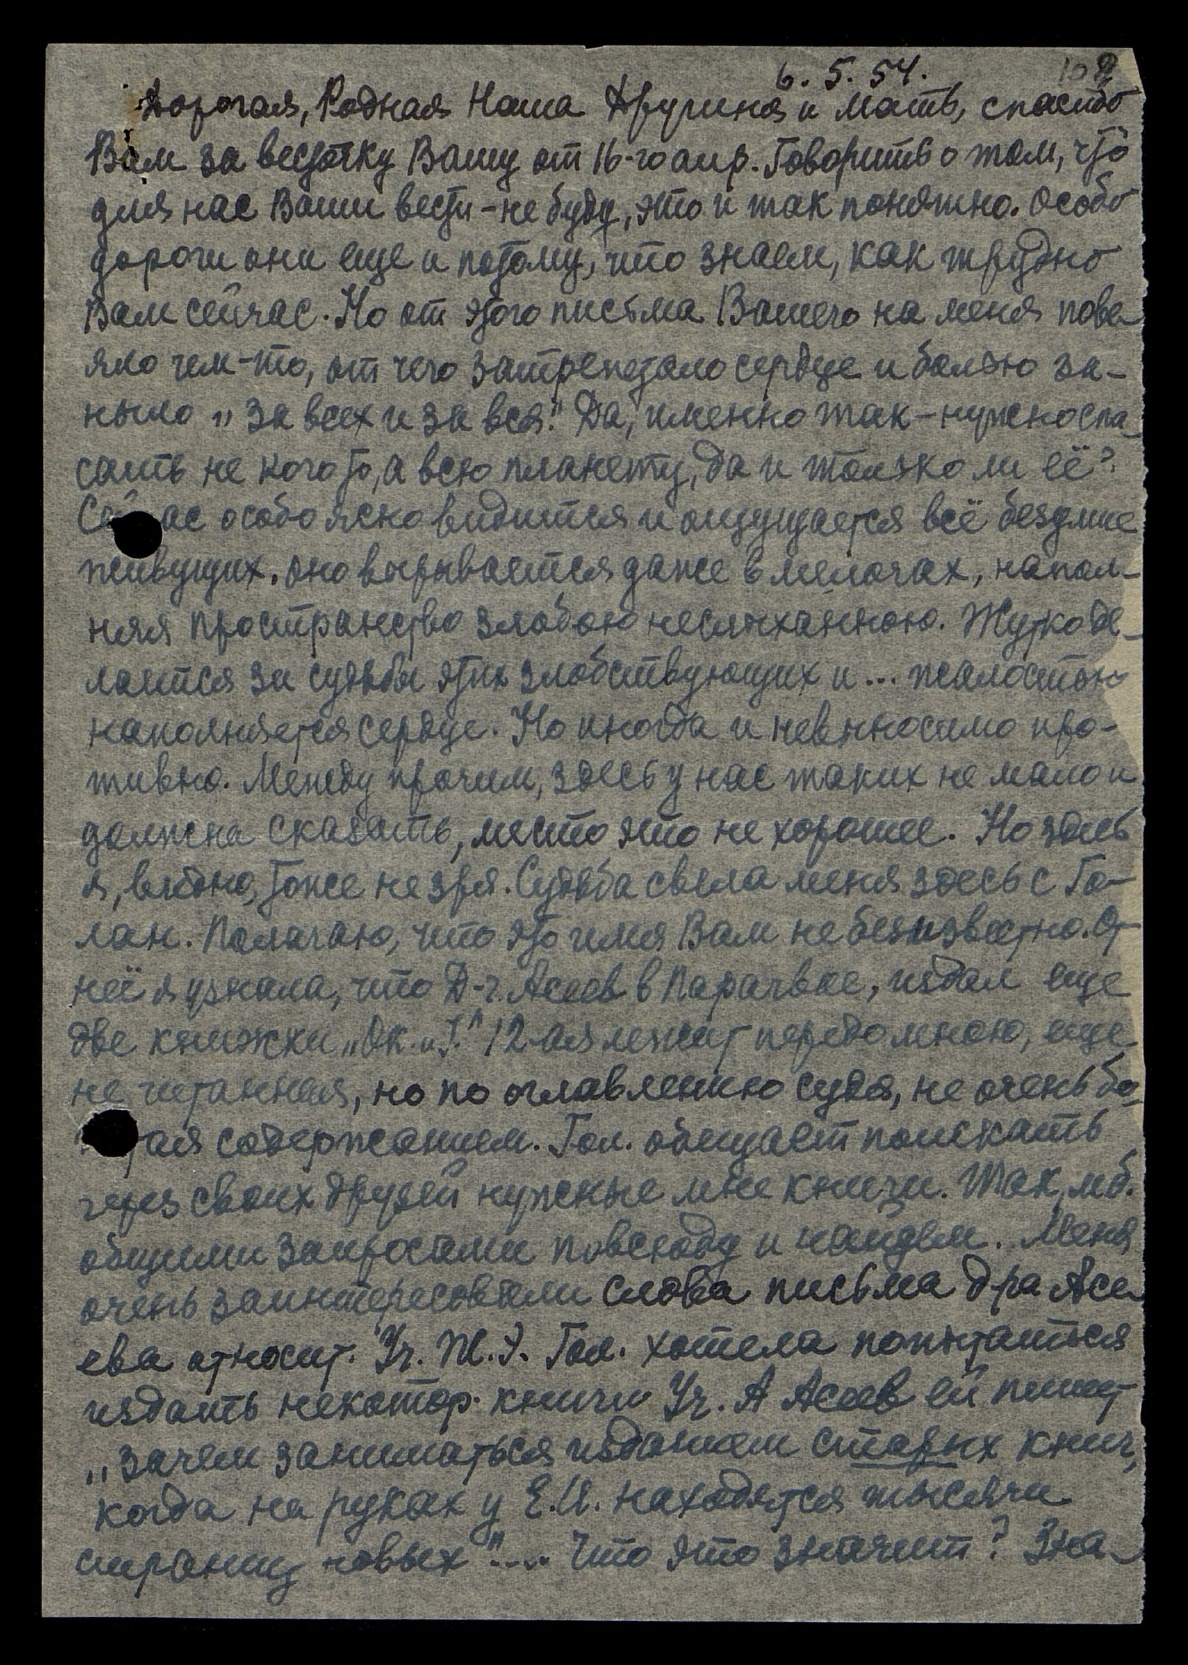 6. 5. 54.
Дорогая, Родная Наша Другиня и Мать, спасибо
Вам за весточку Вашу от 16-го апр. Говорить о том, что
для нас Ваши вести – не буду, это и так понятно. Особо
дороги они еще и потому, что знаем, как трудно
Вам сейчас. Но от этого письма Вашего на меня пове
яло чем-то, от чего затрепетало сердце и болью за-
ныло „за всех и за вся." Да, именно так – нужно спа-
сать не кого то, а всю планету, да и только ли её?
Се ас особо ясно видится и ощущается всё безумие
живущих. Оно вырывается даже в мелочах, напол-
няя пространство злобою неслыханною. Жутко де-
лается за судьбы этих злобствующих и ... жалостью
наполняется сердце. Но иногда и невыносимо про-
тивно. Между прочим, здесь у нас таких не мало и
должна сказать, место это не хорошее. Но здесь
я, видно, тоже не зря. Судьба свела меня здесь с Го-
лан. Полагаю, что это имя Вам не безызвестно. От
неё я узнала, что Д-р Асеев в Парагвае, издал еще
две книжки „Ок. и Т." 12-ая лежит передо мною, еще
не читанная, но по оглавлению судя, не очень бо-
ая содержанием. Гол. обещает поискать
через своих друзей нужные мне книги. Так, мб.
общими запросами повсюду и найдем. Меня
очень заинтересовали слова письма д-ра Асе-
ева относит. Уч. Ж.Э. Гол. хотела попытаться
издать некотор. книги Уч. А Асеев ей пишет
„зачем заниматься изданием старых книг,
когда на руках у Е.И. находятся тысячи
страниц новых"..... Что это значит? Зна-